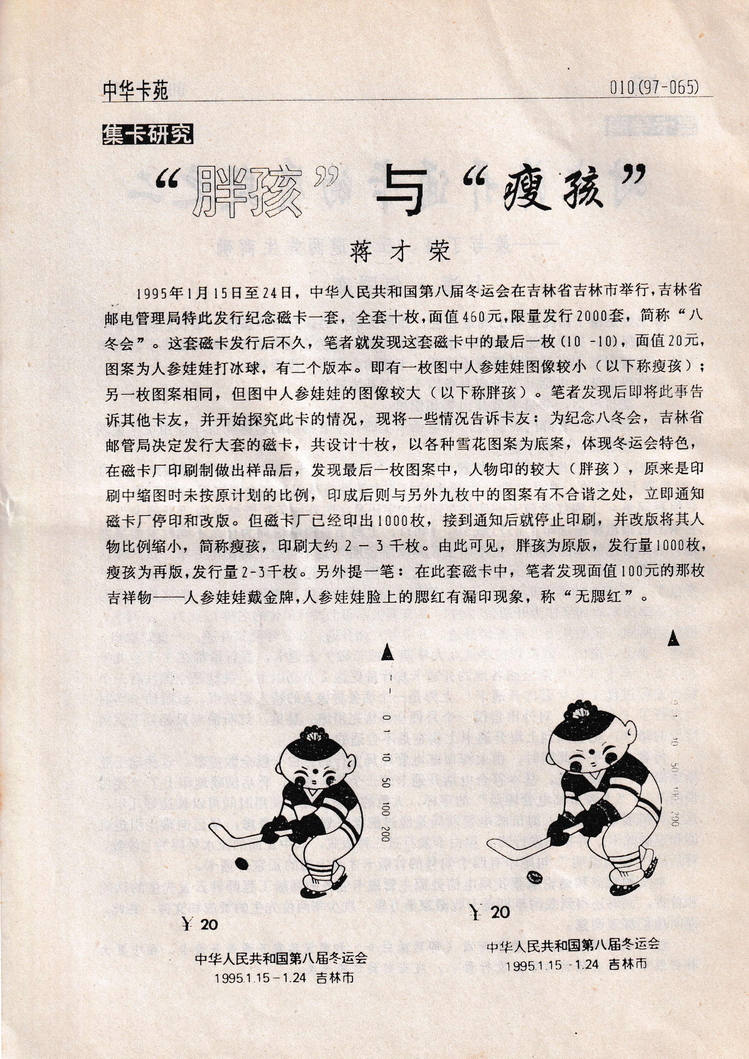 中华卡苑 010(97-065)
集卡研究
“胖孩”与“瘦孩”
蒋才荣
1995年1月15日至24日，中华人民共和国第八届冬运会在吉林省吉林市举行，吉林省
邮电管理局特此发行纪念磁卡一套，全套十枚，面值460元，限量发行2000套，简称“八
冬会”。这套磁卡发行后不久，笔者就发现这套磁卡中的最后一枚(10-10)，面值20元，
图案为人参娃娃打冰球，有二个版本。即有一枚图中人参娃娃图像较小（以下称瘦孩）；
另一枚图案相同，但图中人参娃娃的图像较大（以下称胖孩）。笔者发现后即将此事告
诉其他卡友，并开始探究此卡的情况，现将一些情况告诉卡友：为纪念八冬会，吉林省
邮管局决定发行大套的磁卡，共设计十枚，以各种雪花图案为底案，体现冬运会特色，
在磁卡厂印刷制做出样品后，发现最后一枚图案中，人物印的较大（胖孩），原来是印
刷中缩图时未按原计划的比例，印成后则与另外九枚中的图案有不合谐之处，立即通知
磁卡厂停印和改版。但磁卡厂已经印出1000枚，接到通知后就停止印刷，并改版将其人
物比例缩小，简称瘦孩，印刷大约2-3千枚。由此可见，胖孩为原版，发行量1000枚，
瘦孩为再版，发行量2-3千枚。另外提一笔：在此套磁卡中，笔者发现面值100元的那枚
吉祥物——人参娃娃戴金牌，人参娃娃脸上的腮红有漏印现象，称“无腮红”。
0 1 10 50 100 200
¥ 20
中华人民共和国第八届冬运会
1995.1.15-1.24 吉林市
10 50 100 200
¥ 20
中华人民共和国第八届冬运会
1995.1.15-1.24 吉林市